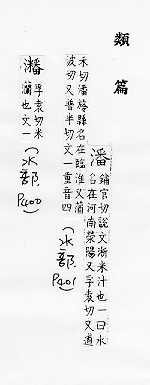 類篇
潘
鋪官切說文淅米汁也一曰水
名在河南滎陽又孚袁切又逋
禾切潘旌縣名在臨淮又蒲
波切又普半切文一重音四
(水部 P401)
孚袁切米
瀾也文一
(水部 P400)